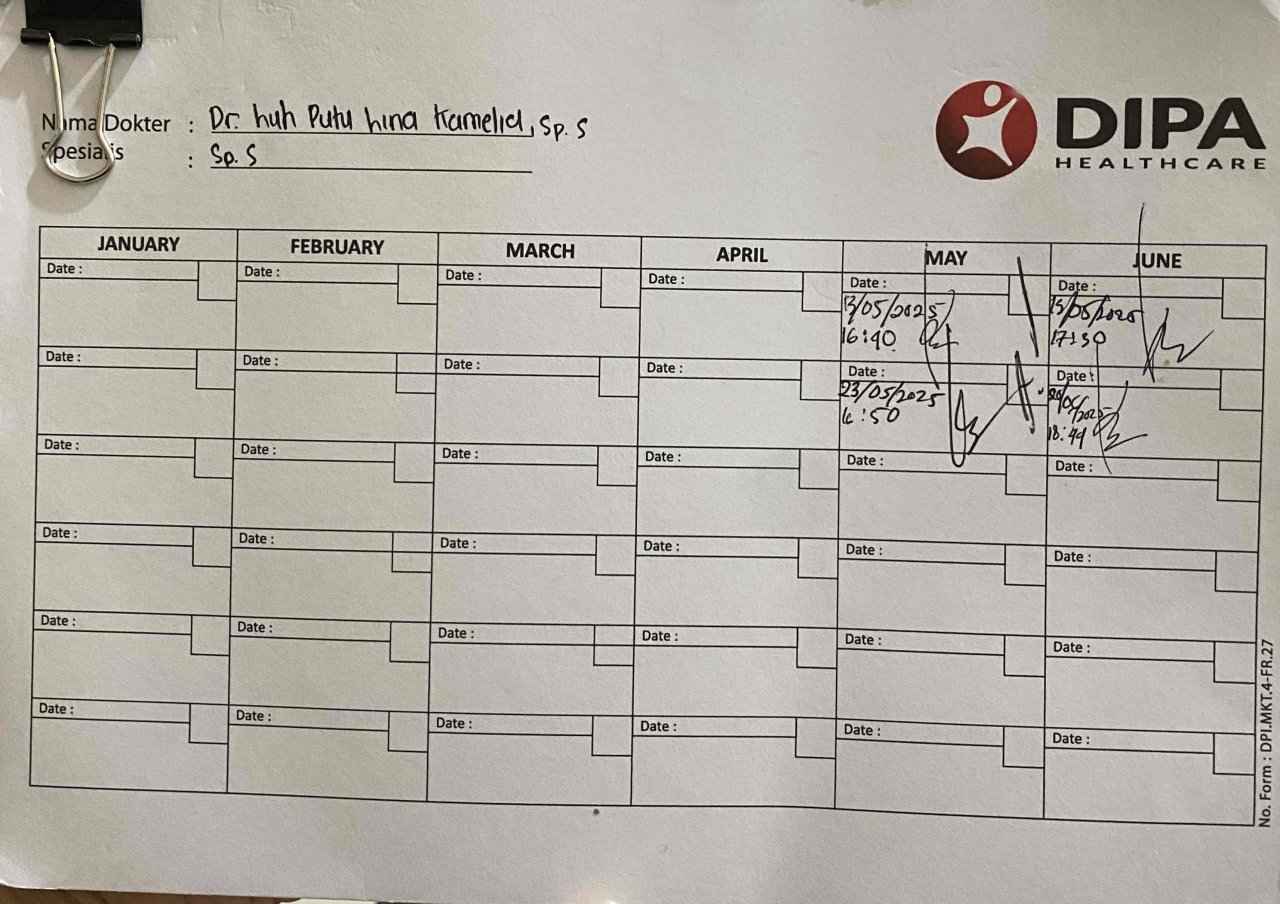 DIPA
HEALTHCARE
Nama Dokter : Dr. huh Putu hina Kamelia, Sp. S
Spesialis : Sp. S
JANUARY FEBRUARY MARCH APRIL MAY JUNE
Date : Date : Date : Date : Date : Date :
13/05/2025 15/05/2025
16:40 17:30
Date : Date : Date : Date : Date : Date :
23/05/2025 20/05/2025
:50 18:44
Date : Date : Date : Date : Date : Date :
Date : Date : Date : Date : Date : Date :
Date : Date : Date : Date : Date : Date :
Date : Date : Date : Date : Date : Date :
No. Form : DPI.MKT.4-FR.27